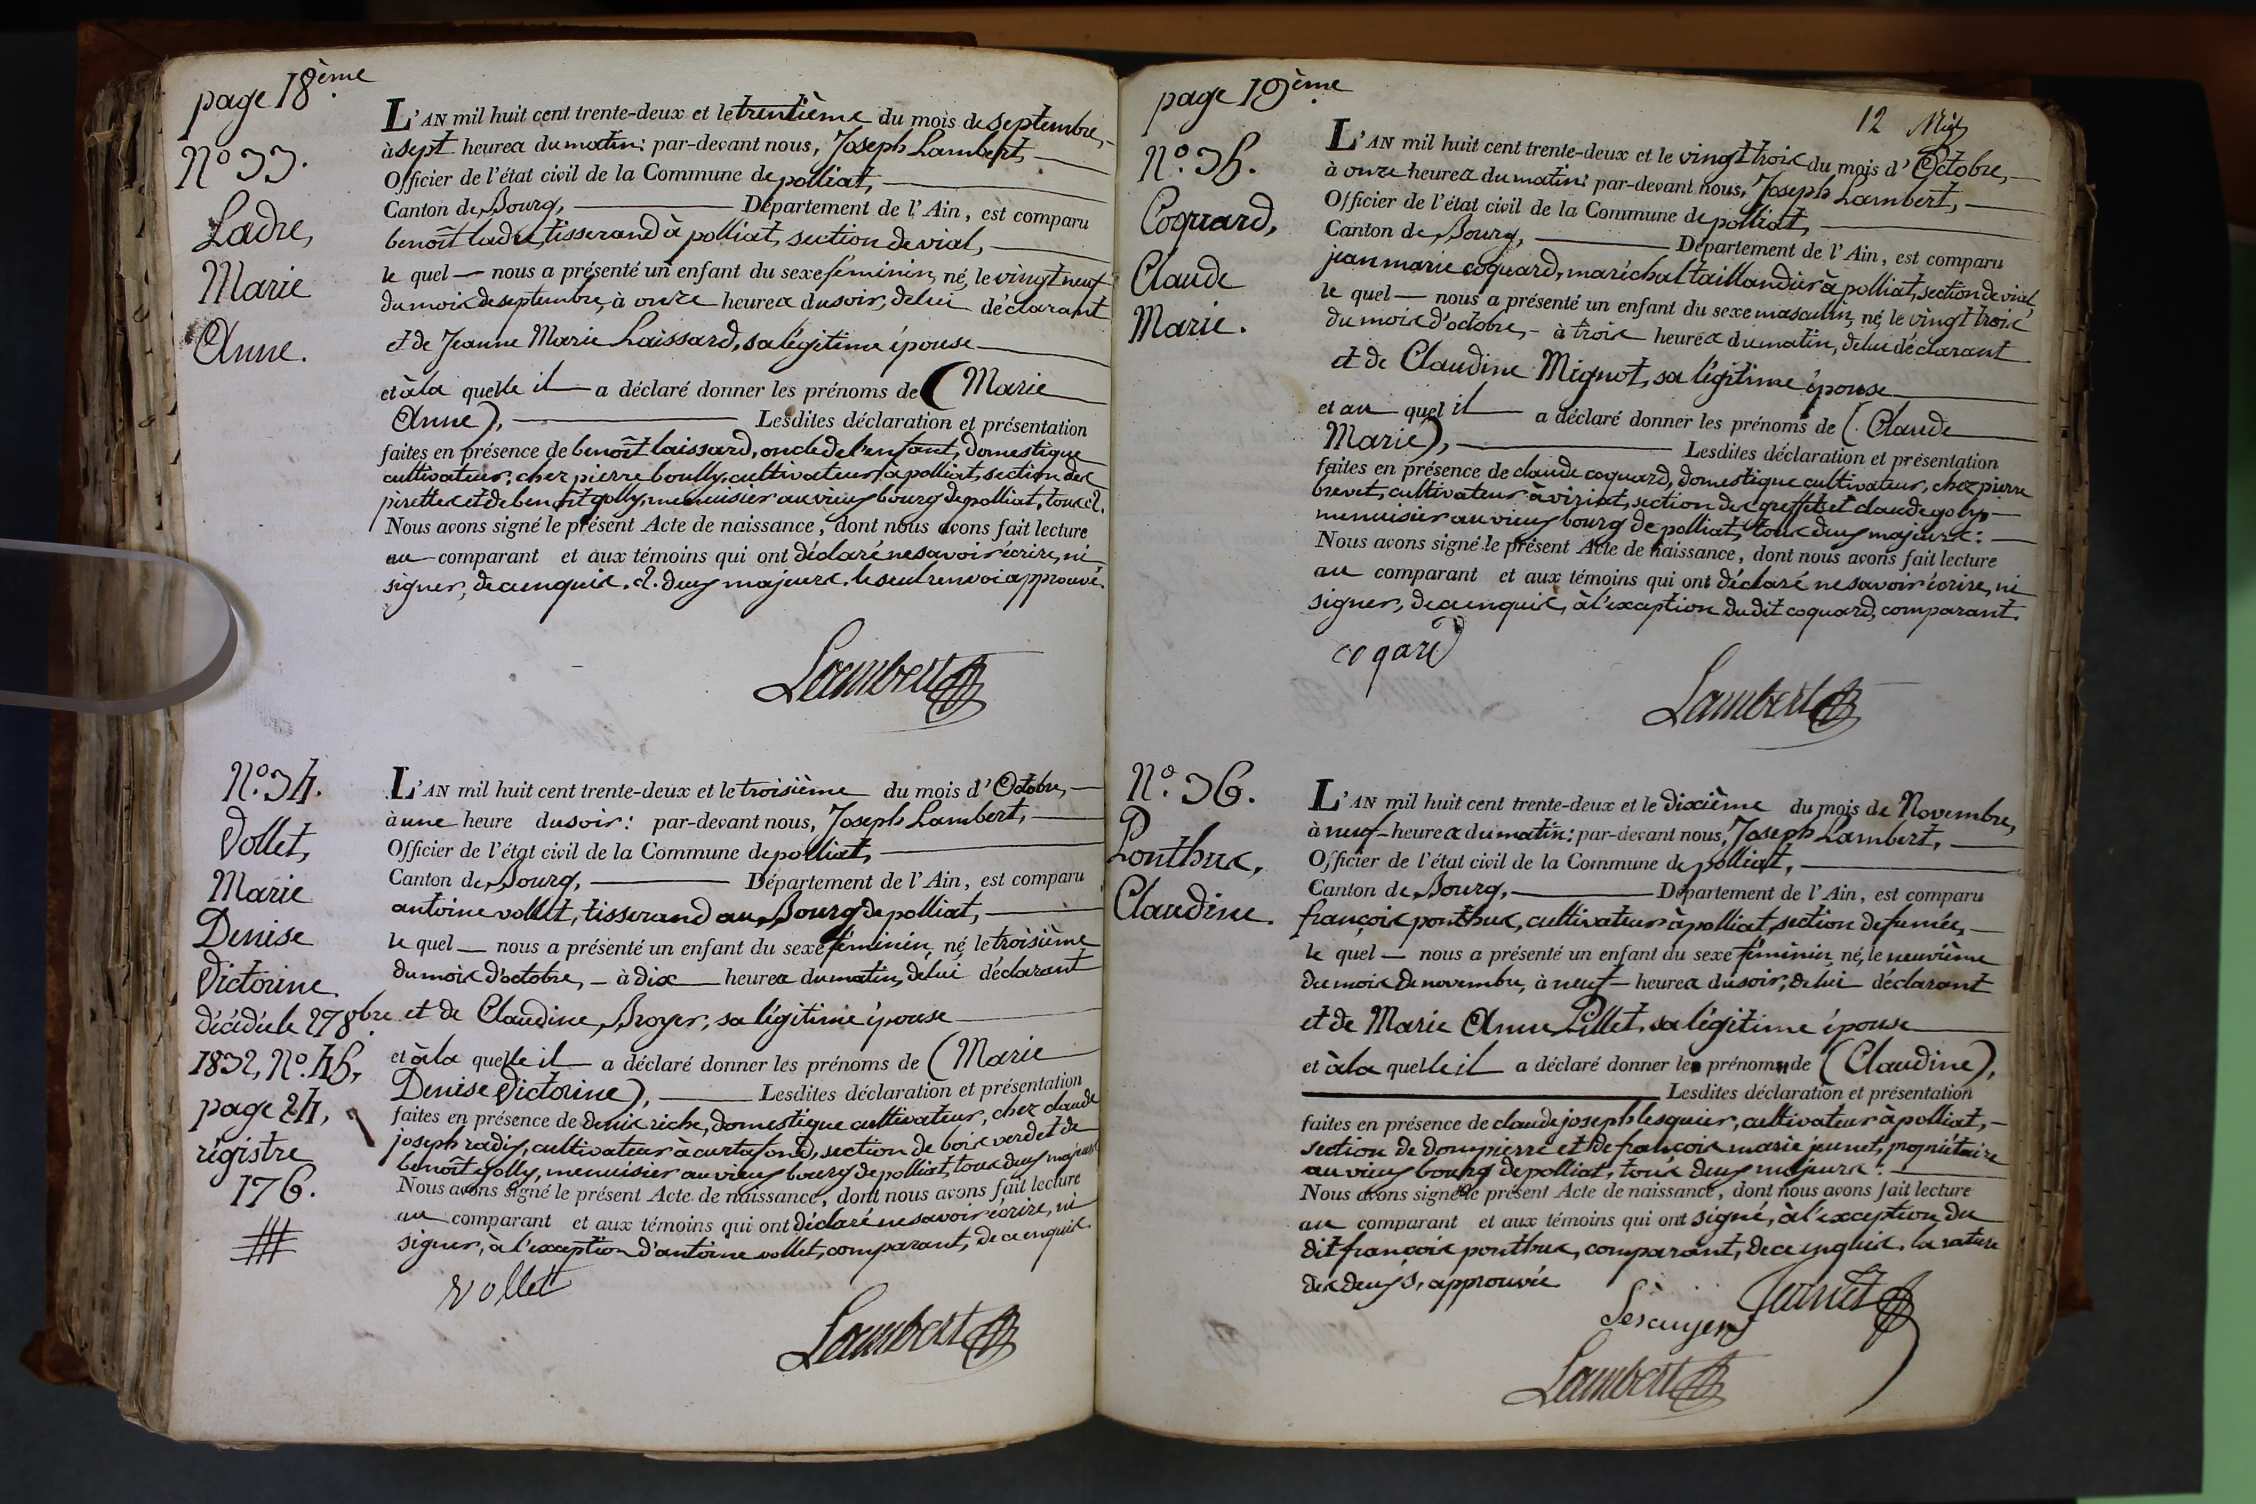 page 18ème
N° 33.
Ladre,
Marie
Anne.
L'AN mil huit cent trente-deux et le trentième du mois de septembre,
à sept heures du matin: par-devant nous, Joseph Lambert,
Officier de l'état civil de la Commune de polliat,
Canton de Bourg, Département de l'Ain, est comparu
benoît ladre, tisserand à polliat, section de vial,
le quel nous a présenté un enfant du sexe féminin, né, le vingt neuf
du mois de septembre, à onze heures du soir, de lui déclarant
et de Jeanne Marie Laissard, sa légitime épouse
et à la quelle il a déclaré donner les prénoms de (Marie
Anne), Lesdites déclaration et présentation
faites en présence de benoît laissard, oncle de l'enfant, domestique
cultivateur, chez pierre boully, cultivateur à polliat, section des
pirettes et de benoît golly, menuisier au vieux bourg de polliat, tous
Nous avons signé le présent Acte de naissance, dont nous avons fait lecture
au comparant et aux témoins qui ont déclaré ne savoir écrire, ni
signer, de ce enquis. deux majeurs. le seul renvoi approuvé.
Lambert
N° 34.
Vollet,
Marie
Denise
Victorine
décédée le 27 8bre
1832, N° 45,
page 24,
régistre
176.
L'AN mil huit cent trente-deux et le troisième du mois d'Octobre,
à une heure du soir: par-devant nous, Joseph Lambert,
Officier de l'état civil de la Commune de polliat,
Canton de Bourg, Département de l'Ain, est comparu
antoine vollet, tisserand au Bourg de polliat,
le quel nous a présenté un enfant du sexe féminin, né, le troisième
du mois d'octobre, à dix heures du matin, de lui déclarant
et de Claudine Broyer, sa légitime épouse
et à la quelle il a déclaré donner les prénoms de (Marie
Denise Victorine), Lesdites déclaration et présentation
faites en présence de denis riche, domestique cultivateur, chez claude
joseph radix, cultivateur à curtafond, section de bois verd et de
benoît golly, menuisier au vieux bourg de polliat, tous deux majeurs
Nous avons signé le présent Acte de naissance, dont nous avons fait lecture
au comparant et aux témoins qui ont déclaré ne savoir écrire, ni
signer, à l'exception d'antoine vollet, comparant, de ce enquis.
vollet
Lambert
page 19ème
12
N° 35.
Coquard,
Claude
Marie.
L'AN mil huit cent trente-deux et le vingt trois du mois d'Octobre,
à onze heures du matin: par-devant nous, Joseph Lambert,
Officier de l'état civil de la Commune de polliat,
Canton de Bourg, Département de l'Ain, est comparu
jean marie coquard, maréchal taillandier à polliat, section de vial,
le quel nous a présenté un enfant du sexe masculin, né, le vingt trois
du mois d'octobre, à trois heures du matin, de lui déclarant
et de Claudine Mignot, sa légitime épouse
et au quel il a déclaré donner les prénoms de (Claude
Marie), Lesdites déclaration et présentation
faites en présence de claude coquard, domestique cultivateur, chez pierre
brevet, cultivateur à viriat, section des greffets et claude goly
menuisier au vieux bourg de polliat, tous deux majeurs:
Nous avons signé le présent Acte de naissance, dont nous avons fait lecture
au comparant et aux témoins qui ont déclaré ne savoir écrire, ni
signer, de ce enquis, à l'exception du dit coquard, comparant.
coqard
Lambert
N° 36.
Ponthus,
Claudine.
L'AN mil huit cent trente-deux et le dixième du mois de Novembre,
à neuf heures du matin: par-devant nous, Joseph Lambert,
Officier de l'état civil de la Commune de polliat,
Canton de Bourg, Département de l'Ain, est comparu
françois ponthus, cultivateur à polliat, section de fumée,
le quel nous a présenté un enfant du sexe féminin, né, le neuvième
du mois de novembre, à neuf heures du soir, de lui déclarant
et de Marie Anne Pillet, sa légitime épouse
et à la quelle il a déclaré donner le prénom de (Claudine),
Lesdites déclaration et présentation
faites en présence de claude joseph lesquier, cultivateur à polliat,
section de dompierre et de françois marie jeunet, propriétaire
au vieux bourg de polliat, tous deux majeurs:
Nous avons signé le présent Acte de naissance, dont nous avons fait lecture
au comparant et aux témoins qui ont signé, à l'exception du
dit françois ponthus, comparant, de ce enquis. la rature
des deux s, approuvée
Jeunet
Lambert